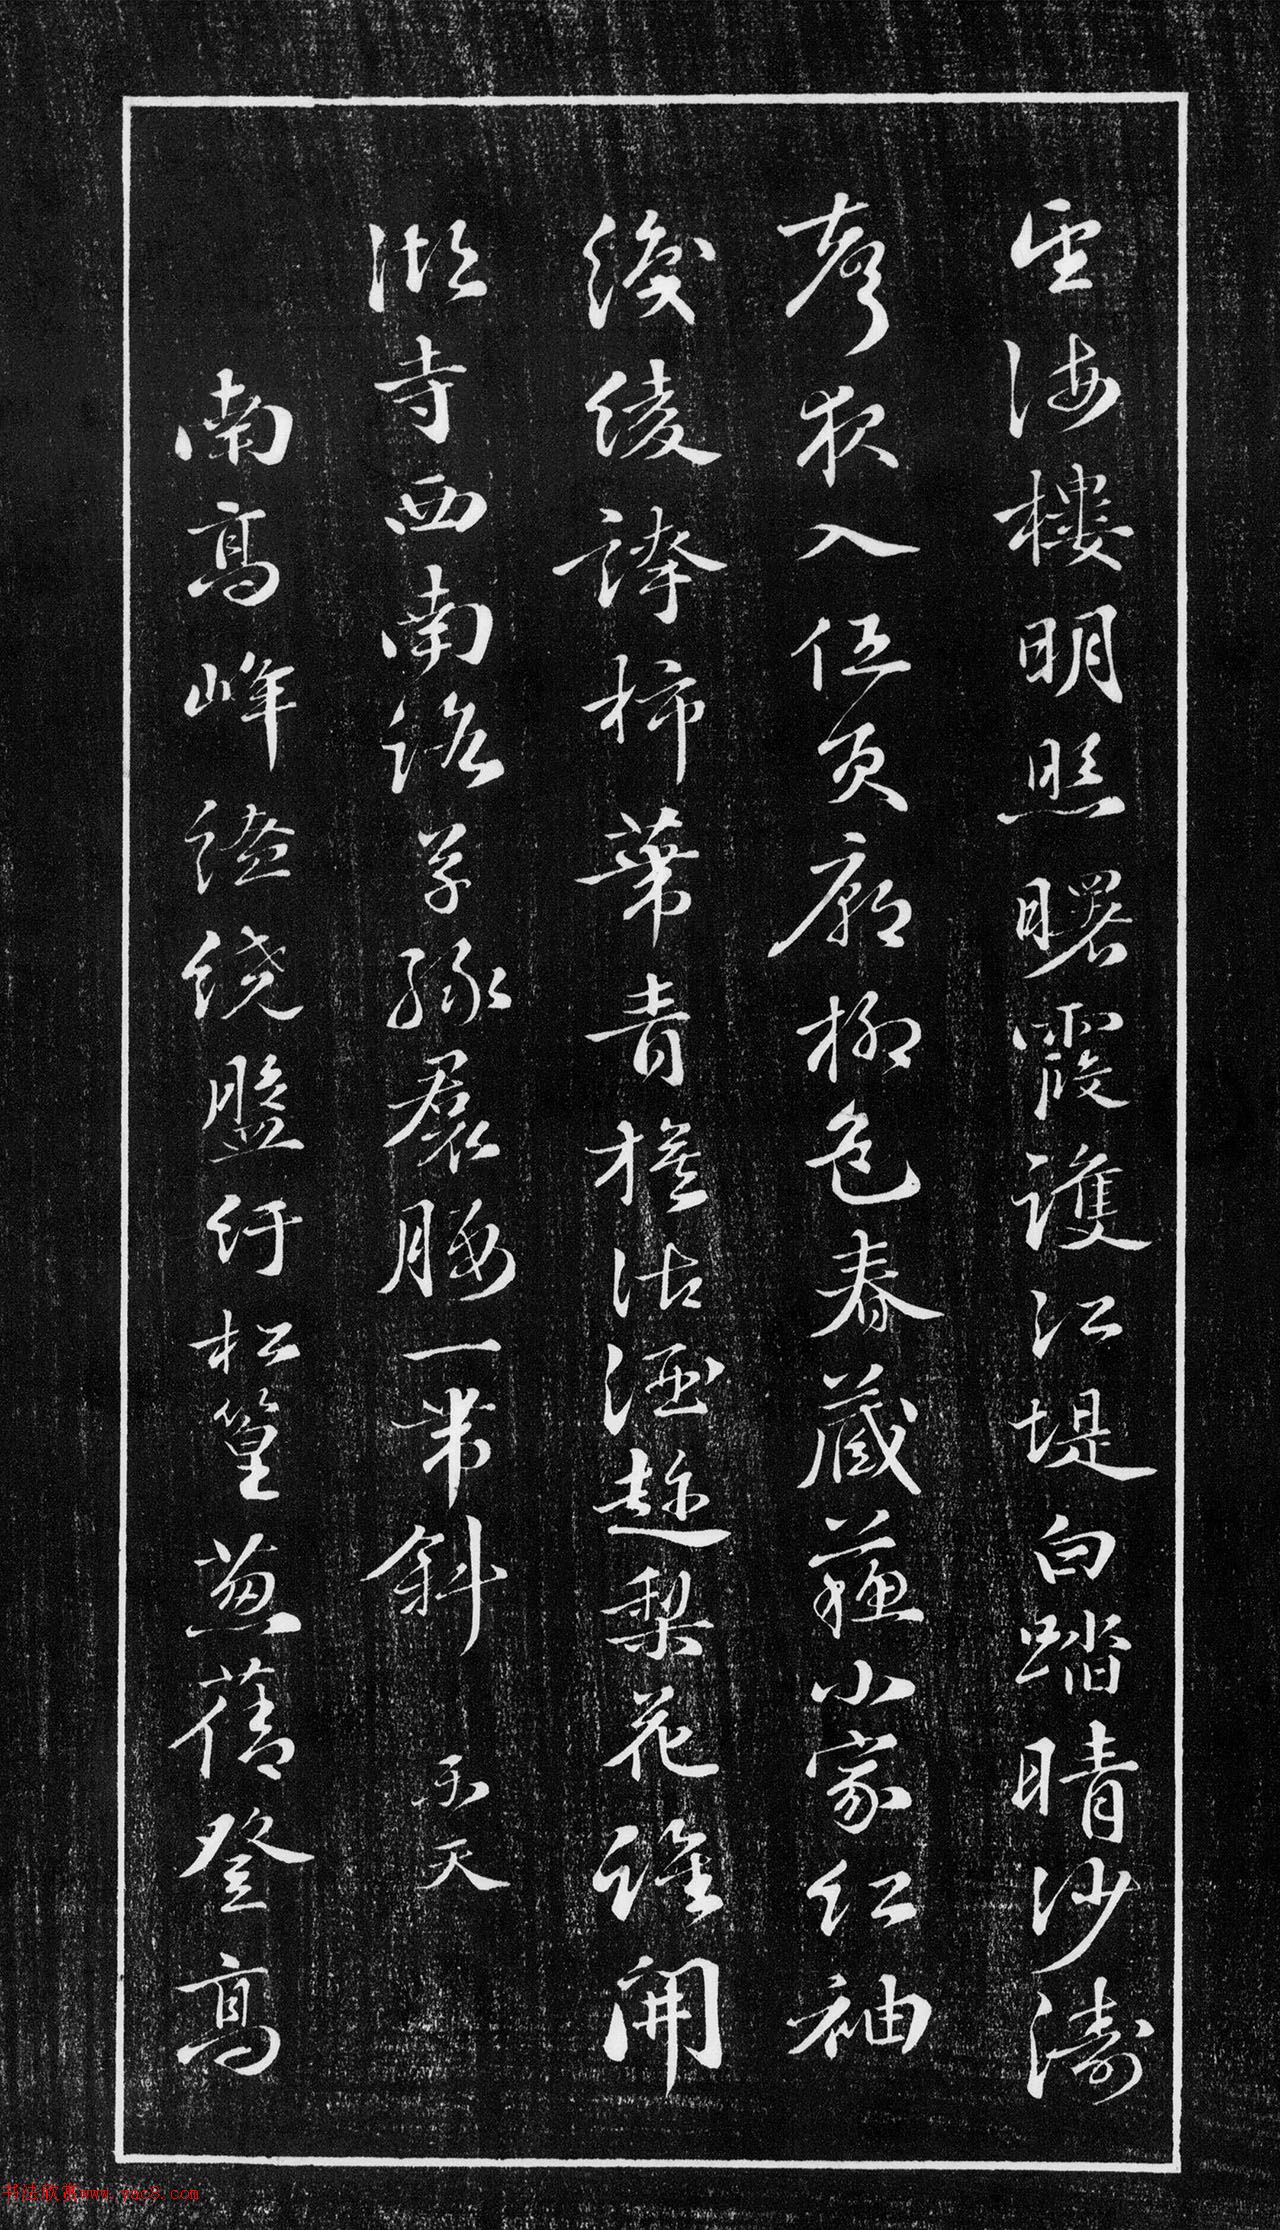 望海樓明照曙霞護江堤白踏晴沙濤
聲夜入伍員廟柳色春藏蘇小家紅袖
織綾誇柿蔕青旗沽酒趁梨花誰開
湖寺西南路草綠裠腰一帶斜 樂天
南高峰繞盤紆松篁葱蒨登高
书法欣赏www.yac8.com